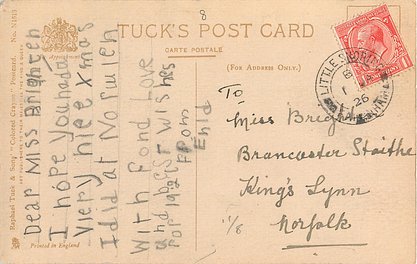 8
TUCK'S POST CARD
CARTE POSTALE
(FOR ADDRESS ONLY.)
By Appointment
Dear Miss Brighten
I hope You had a
Viery nice xmas
I did at Norwich
With fond Love
and best wishes
for 1926 From
Enid
To
Miss Brig
Brancaster Staithe
King's Lynn
Norfolk
Printed in England
Raphael Tuck & Sons'
Postcard
LITTLE
26